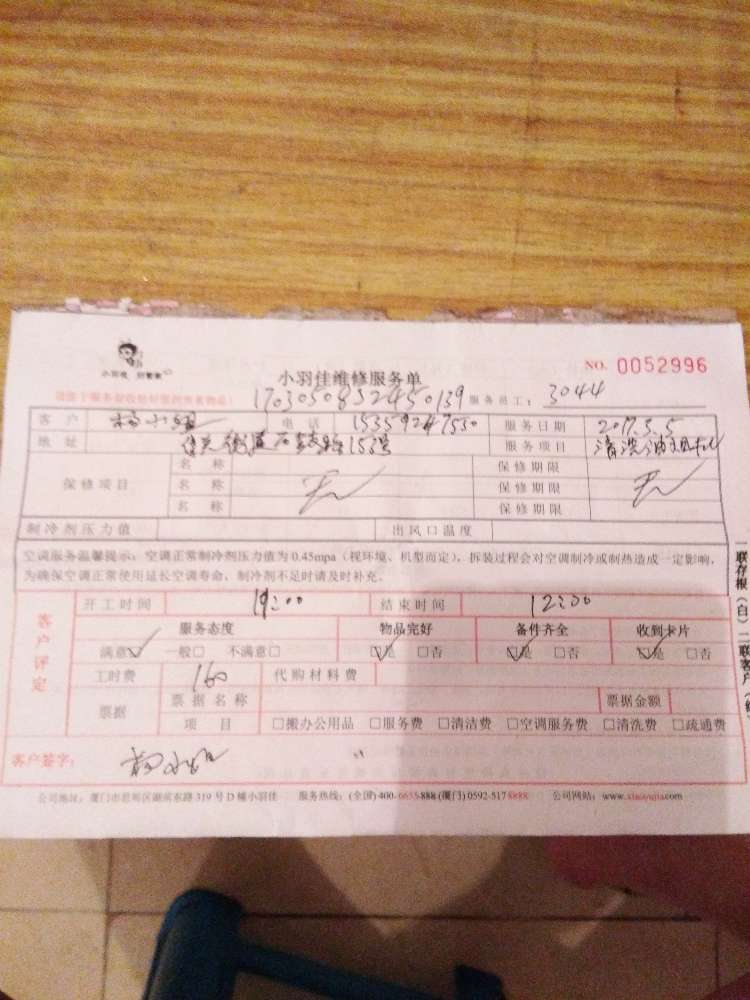 小羽佳 好管家
小羽佳维修服务单
NO. 0052996
1703050832450139 服务员工: 3044
客户 杨小姐 电话 15359247550 服务日期 2017.3.5
地址 街道 153号 服务项目 清洗油烟机
保修项目 名称 无 保修期限 无
名称 保修期限
名称 保修期限
制冷剂压力值 出风口温度
空调服务温馨提示：空调正常制冷剂压力值为0.45mpa（视环境、机型而定），拆装过程会对空调制冷或制热造成一定影响，
为确保空调正常使用延长空调寿命，制冷剂不足时请及时补充。
客户评定
开工时间 结束时间 12:00
服务态度 物品完好 备件齐全 收到卡片
满意☑ 一般□ 不满意□ ☑是 □否 ☑是 □否 ☑是 □否
工时费 160 代购材料费
票据 票据名称 票据金额
项目 □搬办公用品 □服务费 □清洁费 □空调服务费 □清洗费 □疏通费
客户签字：
公司地址：厦门市思明区湖滨东路319号D幢小羽佳 服务热线：(全国)400-6655-888 (厦门)0592-5178888 公司网站：www.xiaoyujia.com
一联存根（白）二联客户